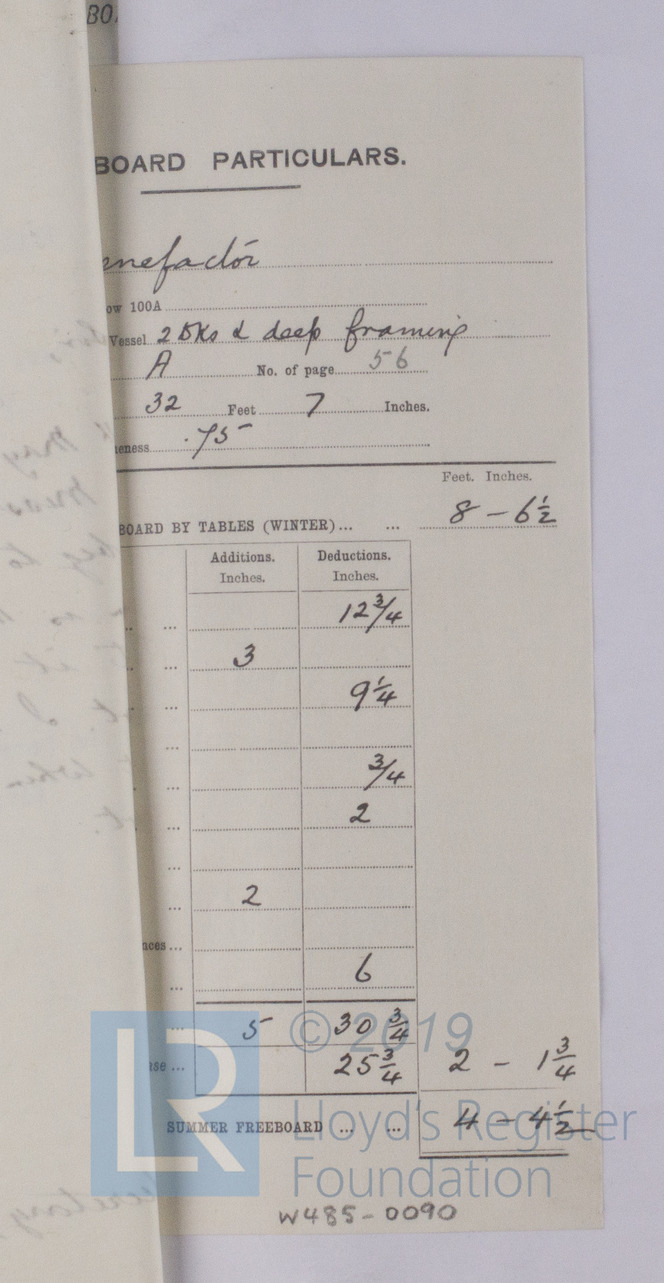 80,
BOARD PARTICULARS.
enefactor
ow 100A
Vessel 2 Dks & deep framing
A No. of page 56
32 Feet 7 Inches.
eness .75
Feet. Inches.
BOARD BY TABLES (WINTER)... ... 8 - 6½
Additions. Inches. Deductions. Inches.
... 12¾
... 3
... 9¼
...
... ¾
... 2
...
... 2
nces...
... 6
... 5 30¾
se ... 25¾ 2 - 1¾
SUMMER FREEBOARD ... ... 4 - 4½
LR
© 2019
Lloyd's Register
Foundation
W485-0090